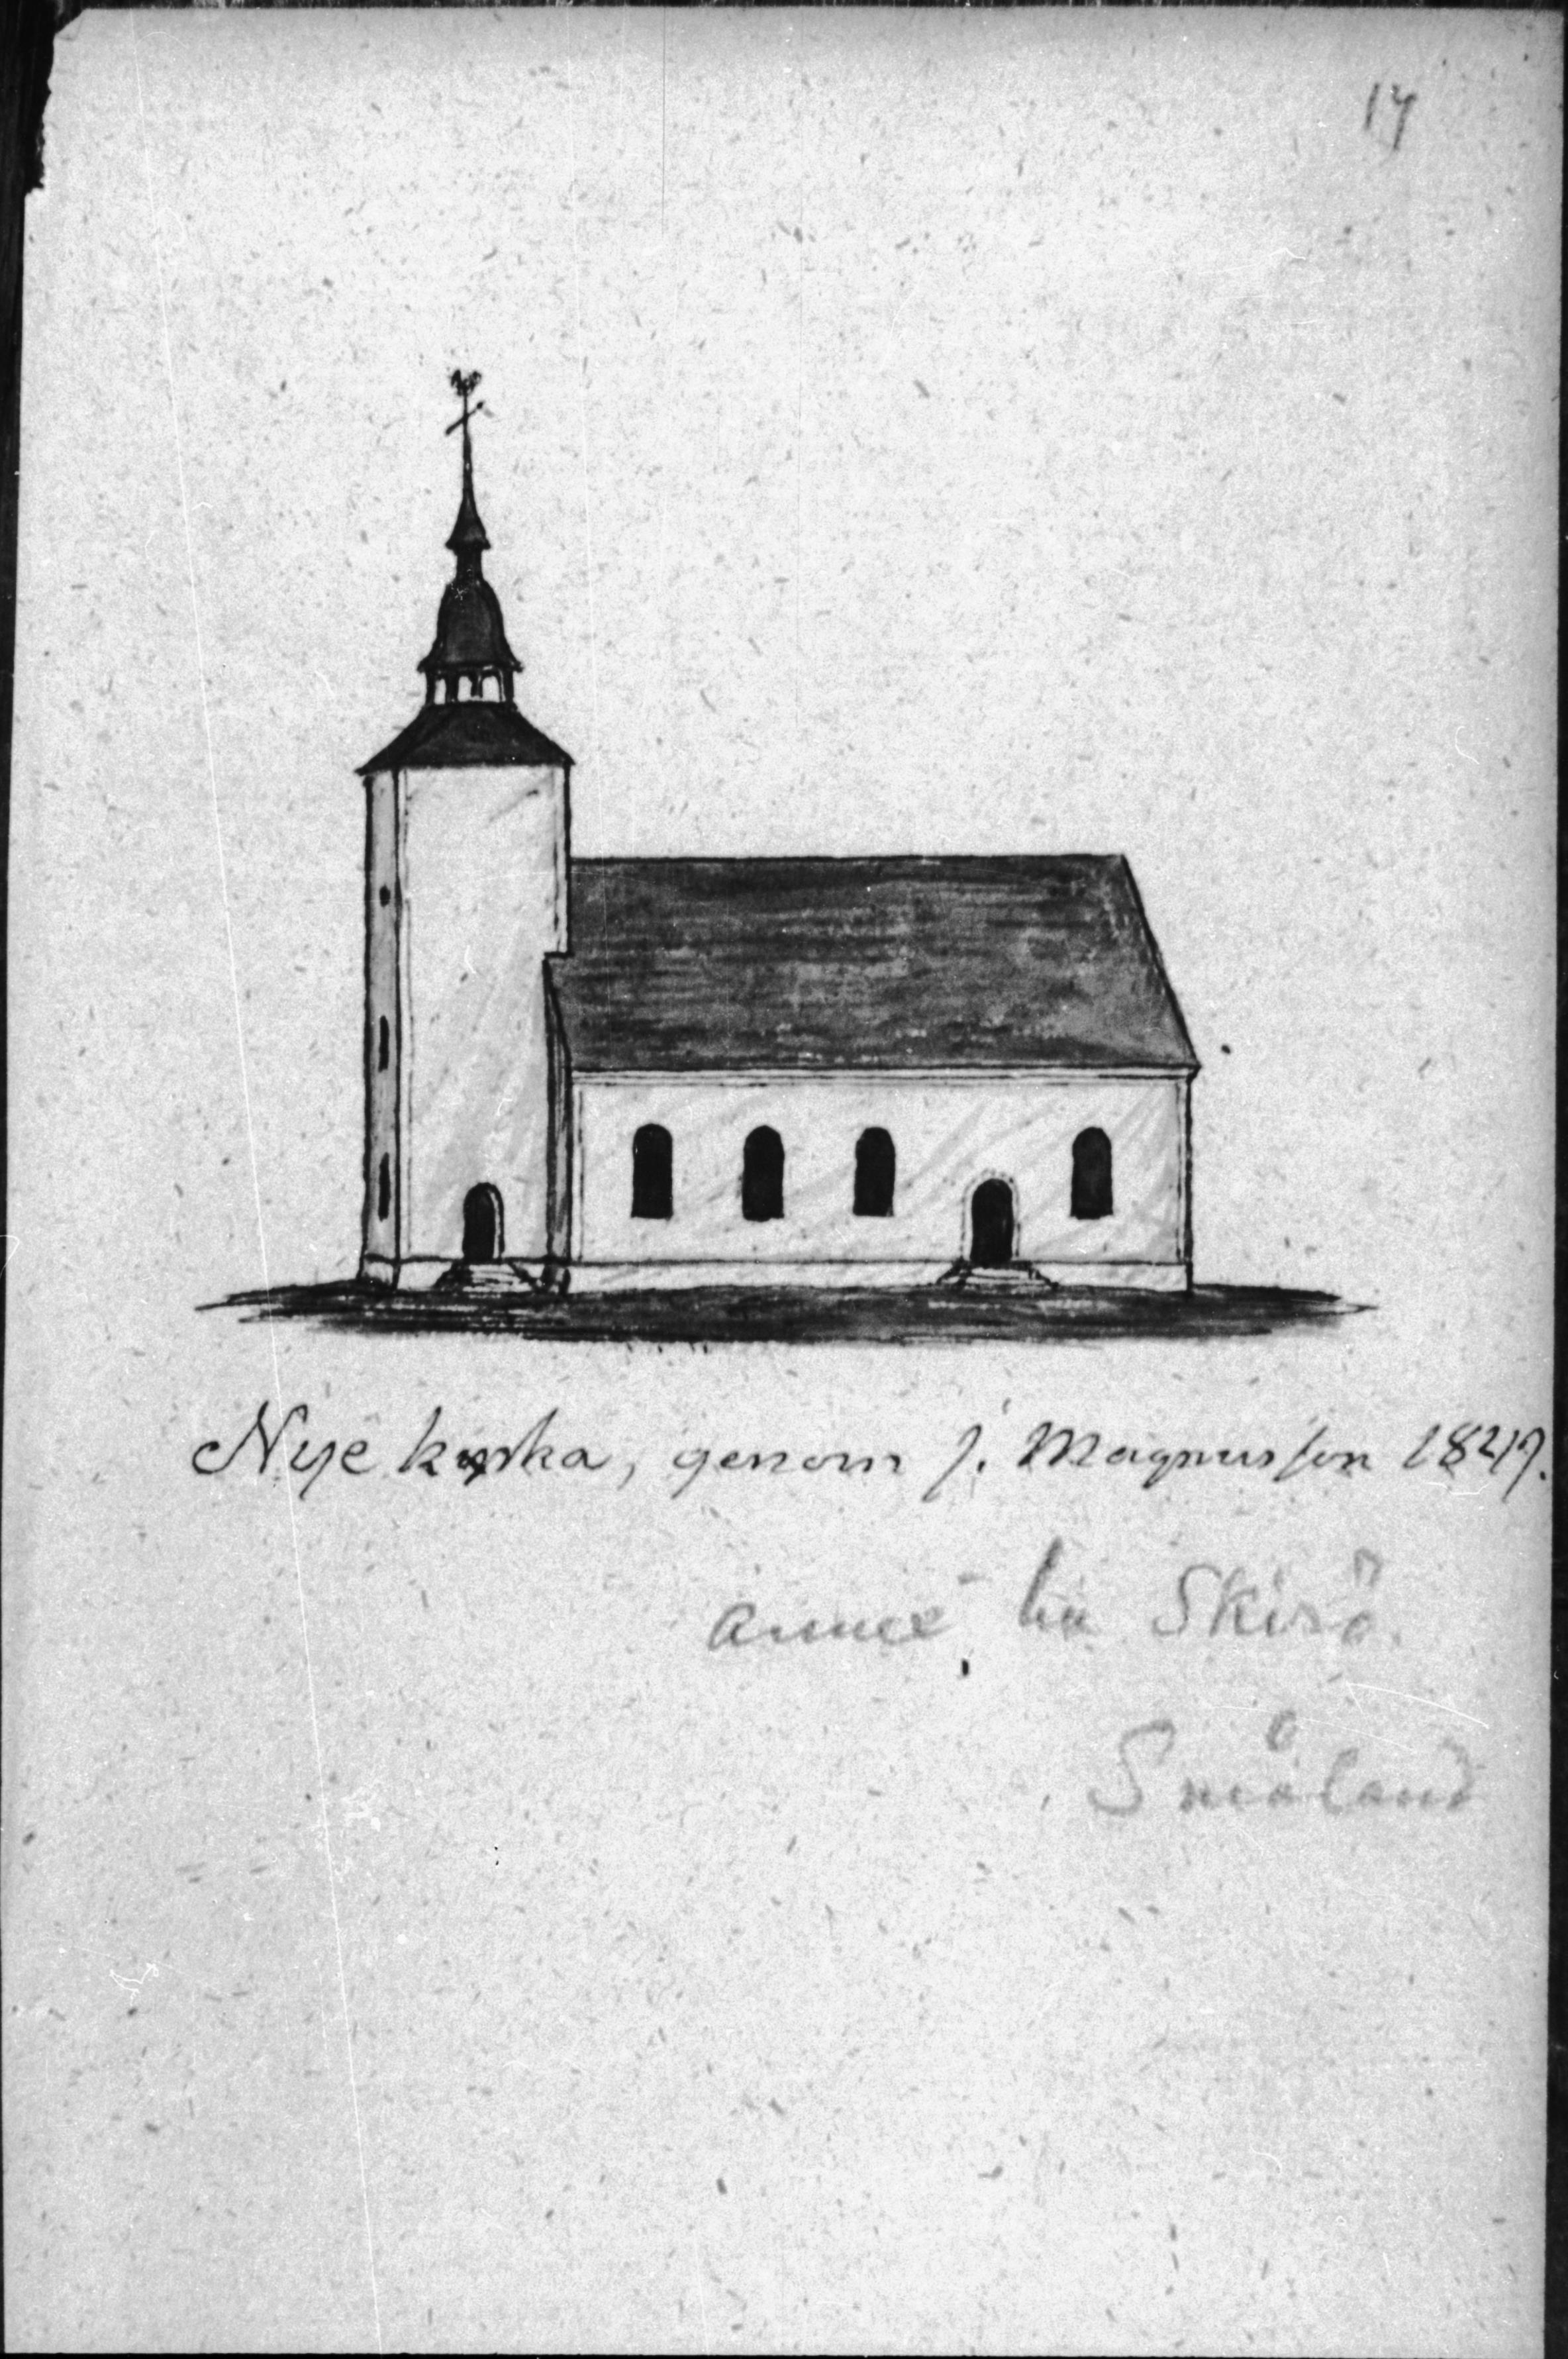 17
Nye kyrka, genom J. Magnusson
annex till Skirö
Småland